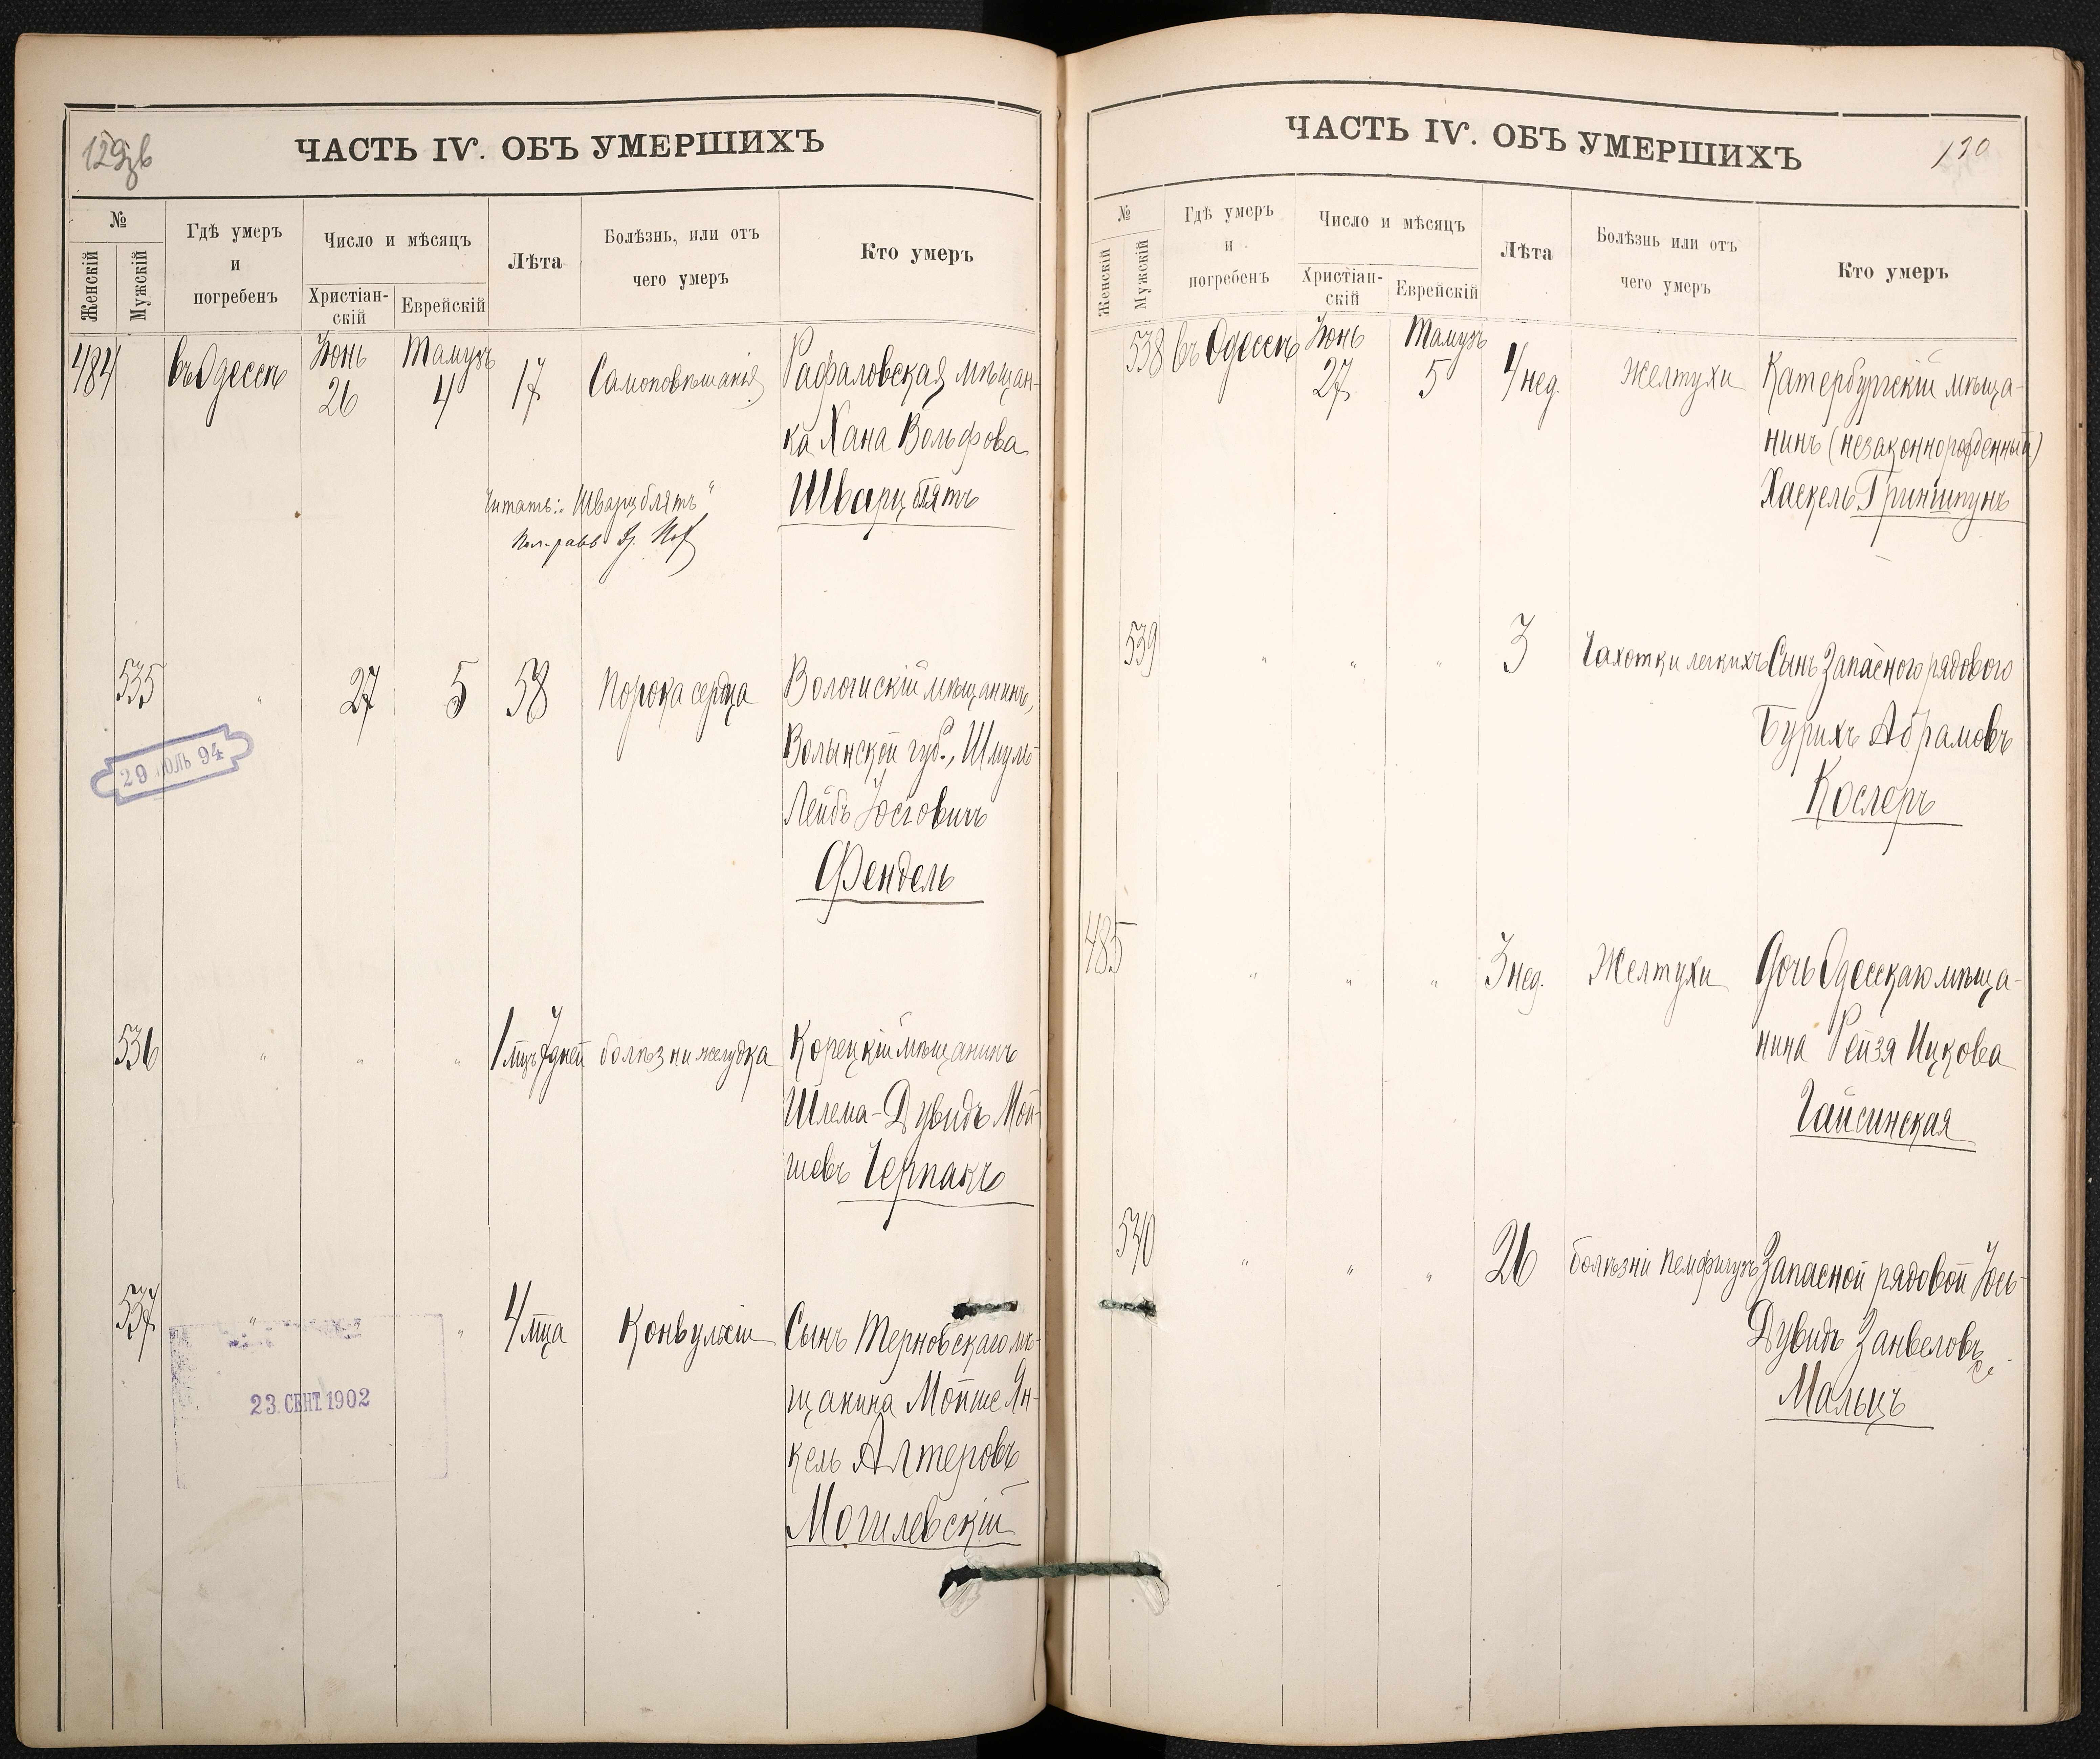 ЧАСТЬ IV. ОБЪ УМЕРШИХЪ
№
Женскій
Мужскій
Гдѣ умеръ
и
погребенъ
Число и мѣсяцъ
Христіан-
скій
Еврейскій
Лѣта
Болѣзнь, или отъ
чего умеръ
Кто умеръ
484 въ Одессѣ Іюнь 26 Тамузъ 4 17 Самоповѣшанія Рафаловская мѣщан-
ка Хана Вольфова
Шварцблятъ
Читать: "Шварцблятъ"
535 " 27 5 58 Порока сердца Вологискій мѣщанинъ,
Волынской губ., Шмуль
Лейбъ Іосіовичъ
Фендель
29 ІЮЛЬ 94
536 " " " 1 мцъ 7 дней болѣзни желудка Корецкій мѣщанинъ
Шлема-Дувидъ Мой-
шевъ Черпакъ
537 " " 4 мца Конвульсіи Сынъ Терновскаго мѣ-
щанина Мойше Ян-
кель Алтеровъ
Могилевскій
23 СЕНТ. 1902
ЧАСТЬ IV. ОБЪ УМЕРШИХЪ
130
№
Женскій
Мужскій
Гдѣ умеръ
и
погребенъ
Число и мѣсяцъ
Христіан-
скій
Еврейскій
Лѣта
Болѣзнь или отъ
чего умеръ
Кто умеръ
538 въ Одессѣ Іюнь 27 Тамузъ 5 4 нед. Желтухи Катербургскій мѣща-
нинъ (незаконнорожденный)
Хаскель Гриншпунъ
539 " " " 3 Чахотки легкихъ Сынъ Запаснаго рядового
Бурихъ Абрамовъ
Кослеръ
485 " " " 3 нед. Желтухи Дочь Одесскаго мѣща-
нина Рейзя Ицкова
Гайсинская
540 " " " 26 болѣзни Пемфигузъ Запасной рядовой Іось-
Дувидъ Занвеловъ
Мальцъ